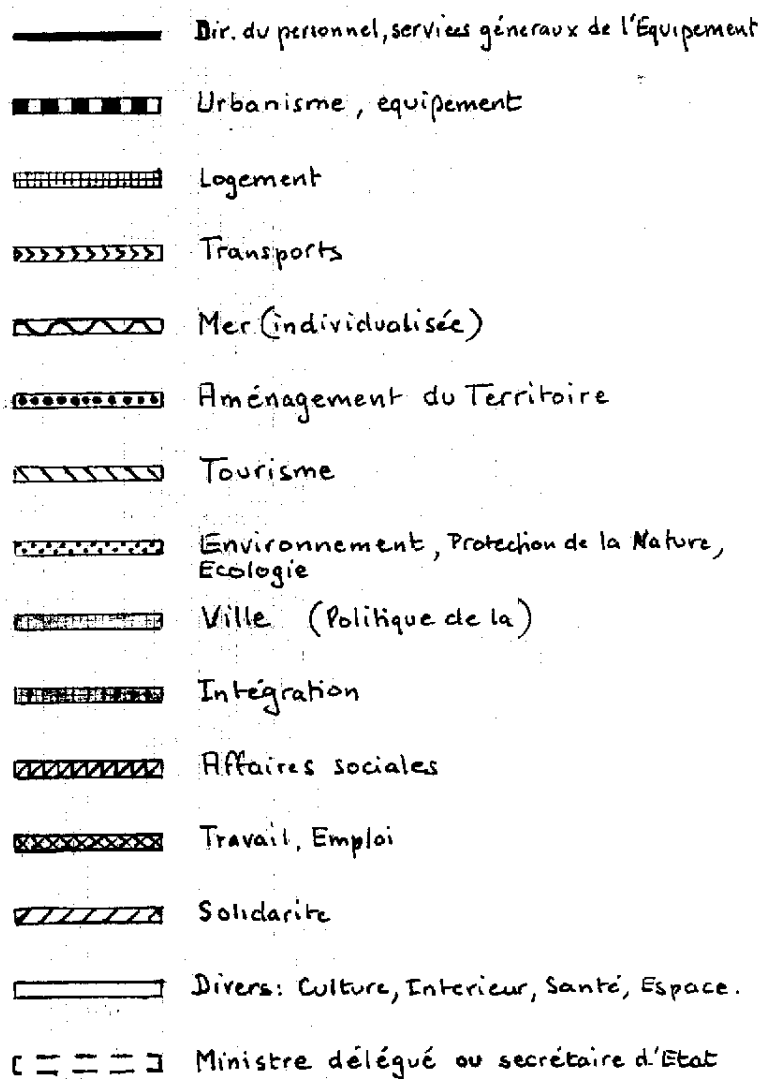 Dir. du personnel, services géneraux de l'Equipement
Urbanisme, equipement
Logement
Transports
Mer (individualisée)
Aménagement du Territoire
Tourisme
Environnement, Protection de la Nature,
Ecologie
Ville (Politique de la)
Intégration
Affaires sociales
Travail, Emploi
Solidarite
Divers: Culture, Interieur, Santé, Espace.
Ministre délégué ou secrétaire d'Etat